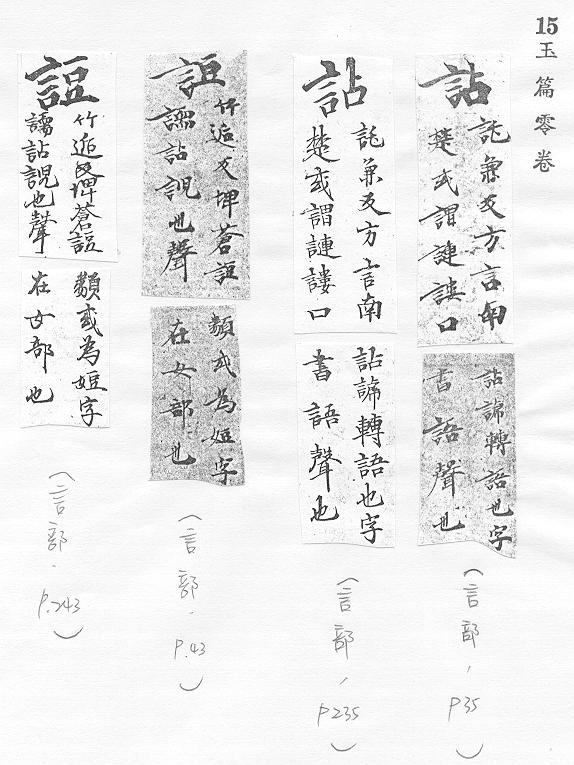 15
玉篇零卷
詀
託兼反方言南
楚或謂謰謱曰
詀謕轉語也字
書語聲也
(言部,
P35
)
詀
託兼反方言南
楚或謂謰謱曰
詀謕轉語也字
書語聲也
(言部,
P235
)
䛠
竹逅反埤蒼䛠
譳詀誽也聲
類或為㛒字
在女部也
(言部,
P.43
)
䛠
竹逅反埤蒼䛠
譳詀誽也聲
類或為㛒字
在女部也
(言部.
P.243
)